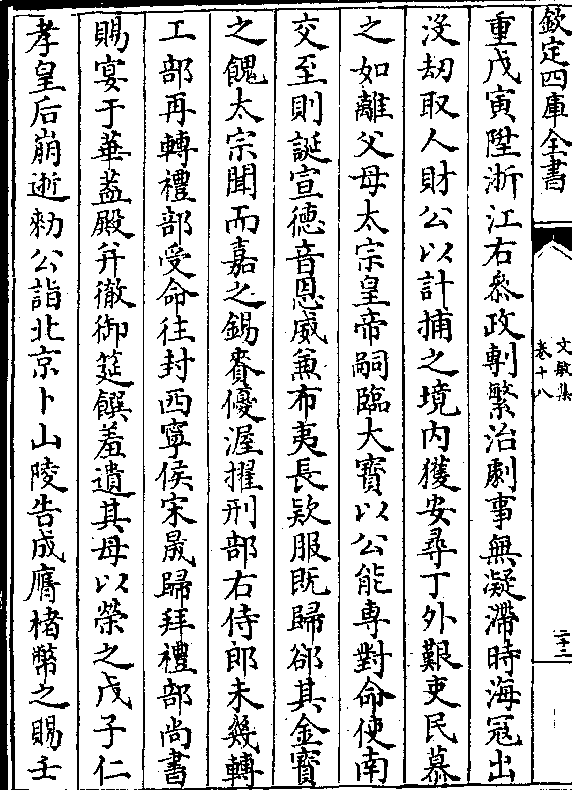 欽定四庫全書
文敏集
卷十八
二十二
重戊寅陞浙江右叅政剸繁治劇事無凝滯時海冦出
没刼取人財公以計捕之境内獲安尋丁外艱吏民慕
之如離父母太宗皇帝嗣臨大寳以公能専對命使南
交至則誕宣徳音恩威兼布夷長欵服既歸郤其金寳
之餽太宗聞而嘉之錫賚優渥擢刑部右侍郎未幾轉
工部再轉禮部受命往封西寧侯宋晟歸拜禮部尚書
賜宴于華葢殿并徹御筵饌羞遺其母以榮之戊子仁
孝皇后崩逝勑公詣北京卜山陵告成膺楮幣之賜壬